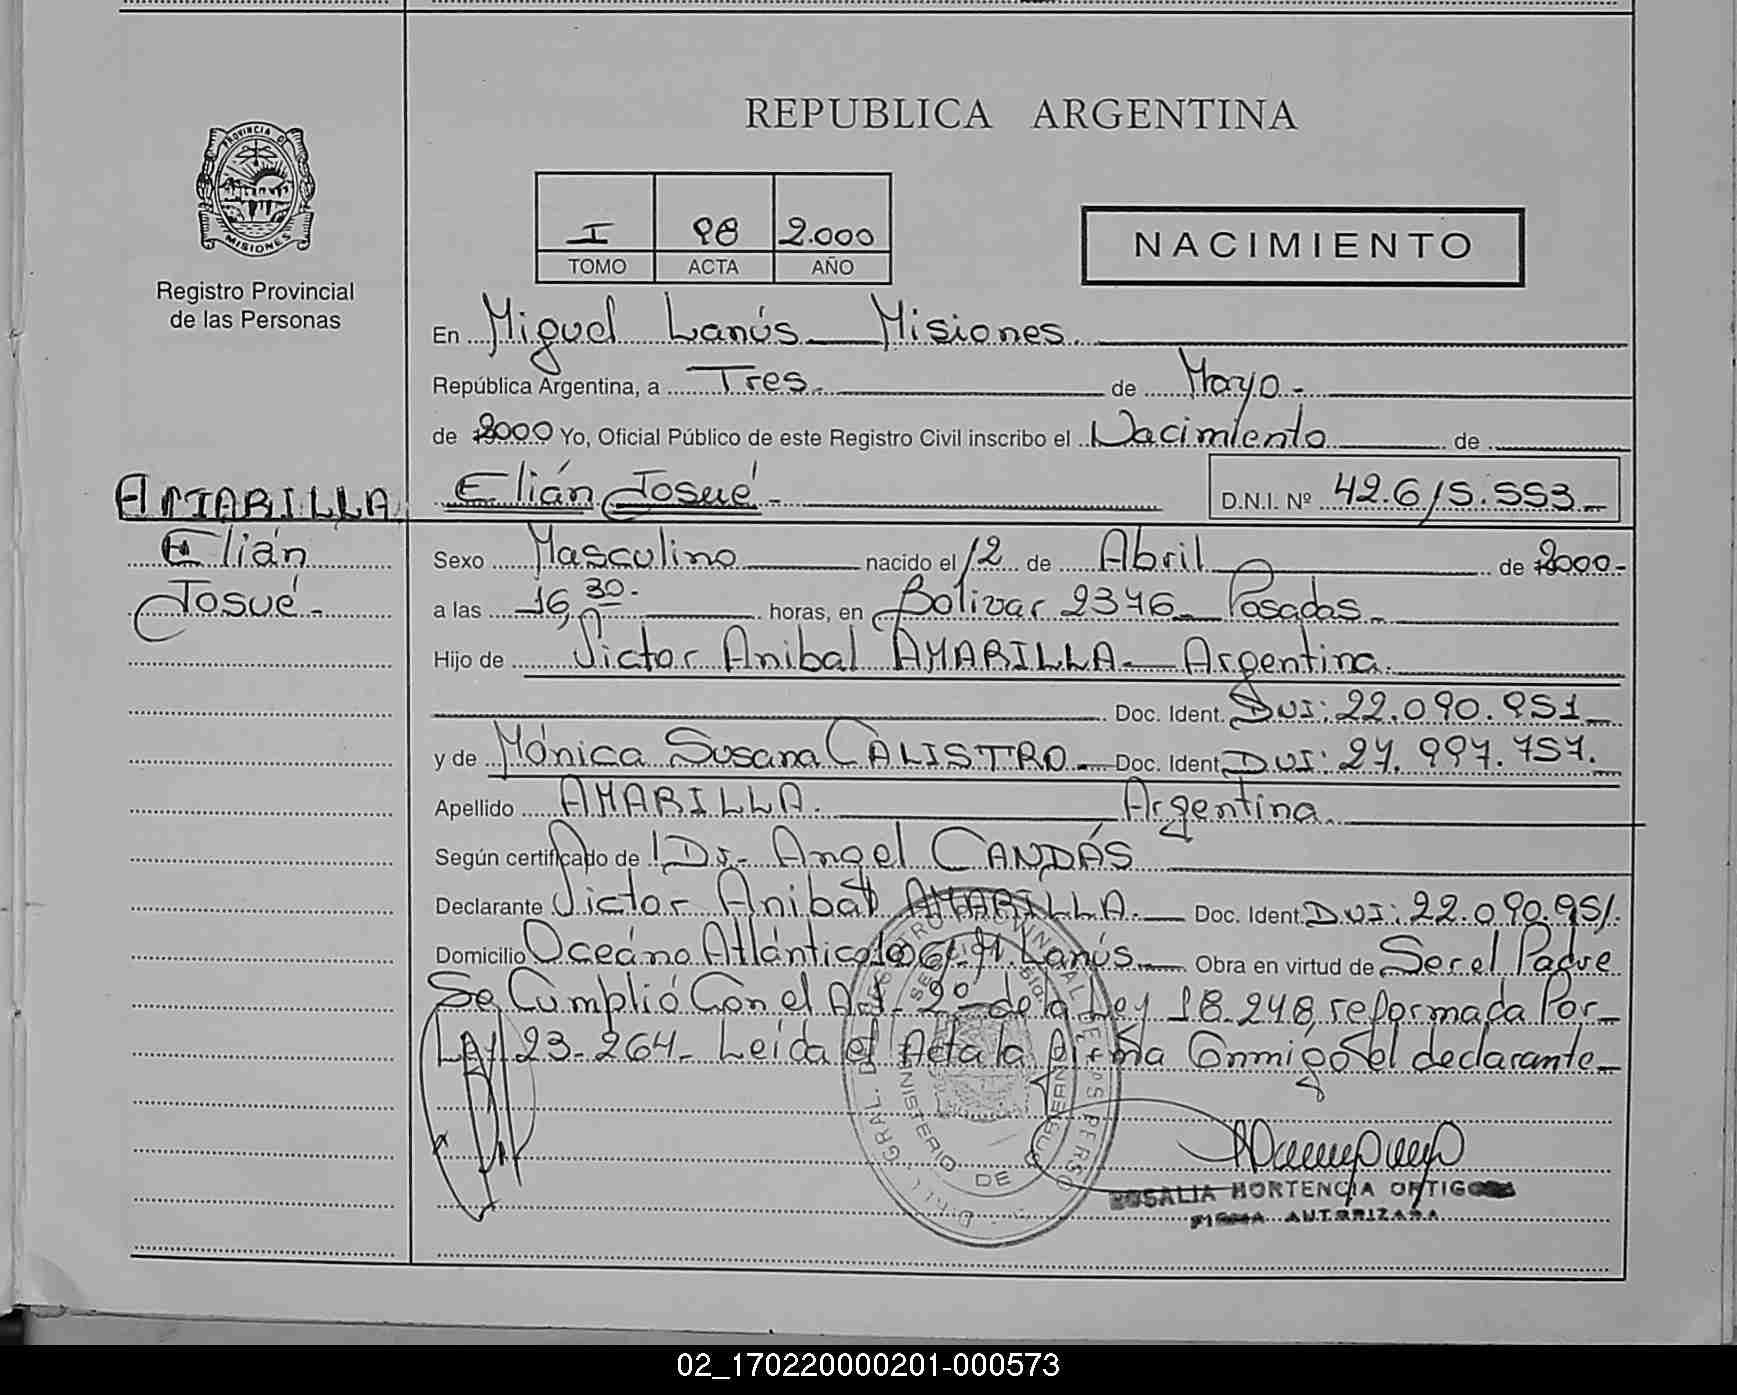 REPUBLICA ARGENTINA
PROVINCIA DE
MISIONES
Registro Provincial
de las Personas
I 98 2.000
TOMO ACTA AÑO
NACIMIENTO
En Miguel Lanús Misiones
República Argentina, a Tres. de Mayo.-
de 2000 Yo, Oficial Público de este Registro Civil inscribo el Nacimiento de
AMARILLA Elián Josué - D.N.I. Nº 42.615.553-
Elián Sexo Masculino nacido el 12 de Abril de 2000-
Josué - a las 16,30- horas, en Bolivar 2376 - Posadas -
Hijo de Victor Anibal AMARILLA - Argentina
Doc. Ident. DUI: 22.090.951
y de Mónica Susana CALISTRO - Doc. Ident. DUI: 27.997.757.
Apellido AMARILLA. Argentina
Según certificado de Dr. Angel CANDÁS
Declarante Victor Anibal AMARILLA. Doc. Ident. DUI: 22.090.951.
Domicilio Oceáno Atlántico Lanús Obra en virtud de Ser el Padre
Se Cumplió Con el Art. 2º de la Ley 18.248, reformada Por-
Ley 23.264- Leída el Acta la firma Conmigo el declarante-
MINISTERIO DE GOBIERNO
ROSALIA HORTENCIA ORTIGOZA
FIRMA AUTORIZADA
02_170220000201-000573